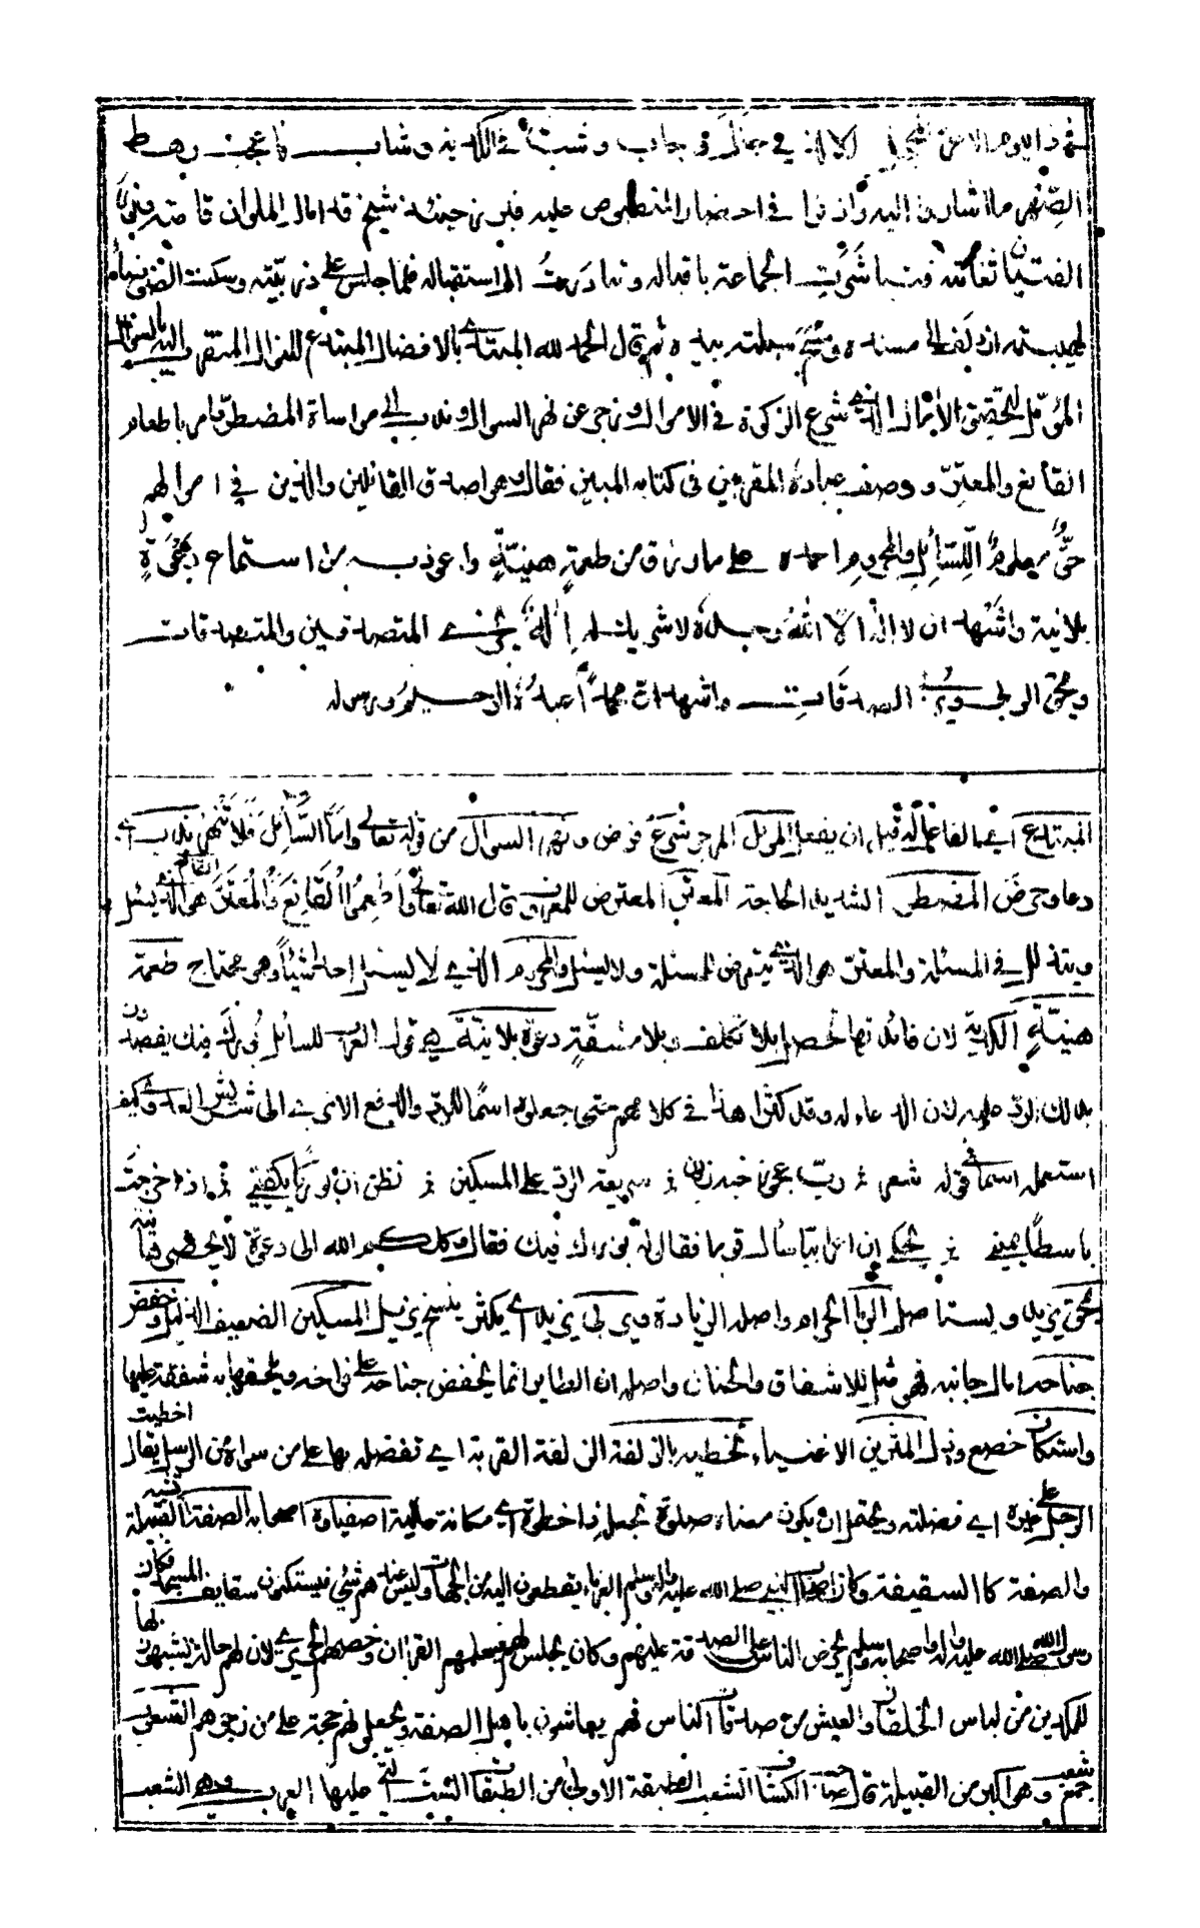 في هذا اليوم الاغر المحجل الا الذي جال وجاب وشب في الكدية وشاب فاعجب رهط
الصهر ما اشاروا اليه واذنوا في احضار المنصوص عليه فبرز حينئذ شيخ قد امال الملوان قامته ونور
الفتيان ثغامته فتباشرت الجماعة باقباله وتبادرت الى استقباله فلما جلس على زربيته وسكنت الضوضاء
لهيبته ازدلف الى مسنده ومسح سبلته بيده ثم قال الحمد لله المبتدئ بالافضال المبتدع للنوال المتقرب اليه بالسؤال
المؤمل لتحقيق الآمال الذي شرع الزكوة في الاموال وزجر عن نهر السؤال وندب الى مواساة المضطر وامر باطعام
القانع والمعتر ووصف عباده المقربين في كتابه المبين فقال وهو اصدق القائلين والذين في اموالهم
حق معلوم للسائل والمحروم احمده على ما رزق من طعمة هنيّة واعوذ به من استماع دعوة
بلا نية واشهد ان لا اله الا الله وحده لا شريك له اله يجزي المتصدقين والمتصدقات
ويمحق الربو ويربي الصدقات واشهد ان محمدا عبده الرحيم ورسوله
المبتدع اي بالفاعل له قبل ان يفعل المؤمل المرجو شرع فرض ونهر السؤال من قوله تعالى واما السائل فلا تنهر ندب اي
دعا وحرض المضطر الشديد الحاجة المعتر المعترض للمعروف قال الله تعالى واطعموا القانع والمعتر القانع هو الذي يسئل
ويتذلل في المسئلة والمعتر هو الذي يتعرض لمسئلة ولا يسئل والمحروم الذي لا يسئل احدا شيئا وهو محتاج طعمة
هنيّة الكدية لان فائدتها تحصل بلا تكلف وبلا مشقة دعوة بلا نية هي قول العرب للسائل بورك فيك يقصدون
بذلك الرد عليه لان الدعاء له وقد كثر هذا في كلامهم حتى جعلوه اسما للرد والدفع
استعمل اسما في قوله شعر رب عجوز خبة زبون سريعة الرد على المسكين تظن ان بوركا يكفيني اذا خرجت
باسطا يميني يحكى ان اعرابيا سأل قوما فقال له بورك فيك فقال وكلكم الله الى دعوة لا يحضر فيها نية
يمحق يزيل ويستاصل الربا الحرام واصله الزيادة ويربي يزيد اي يكثر المسكين الضعيف الذليل وخفض
جناحه امال جانبه فهي مثل للاشفاق والحنان واصله ان الطاير انما يخفض جناحه على فراخه ويلحفها به شفقة عليها
واستكان خضع وذل المثرين الاغنياء تحظيه بالزلفة الزلفة القربة اي تفضله بها على من سواه من الرسل يقال احظيت
الرجل على غيره اي فضلته ويحتمل ان يكون معناه صلوة تجعله ذا حظوة اي مكانة علية اصفياؤه اصحابه الصفة
والصفة كالسقيفة وكان اصحاب النبي صلى الله عليه وآله وسلم الغرباء ينقطعون اليه من الجهات وليس عندهم شيء فيسكنون سقايف المسجد فكان
رسول الله صلى الله عليه وآله واصحابه وسلم يحرض الناس على الصدقة عليهم وكان يجلس لهم فيعلمهم القرآن وخصهم الحريري لان لهم حالة يشبهون بها
للمكدين من لباس الخلقان والعيش من صدقات الناس فهم يعاشون باهل الصفة ويجعلونهم حجة على من زجرهم الشعوب
جمع شعب وهو اكبر من القبيلة قال صاحب الكشاف الشعب الطبقة الاولى من الطبقات الست التي عليها العرب وهي الشعب